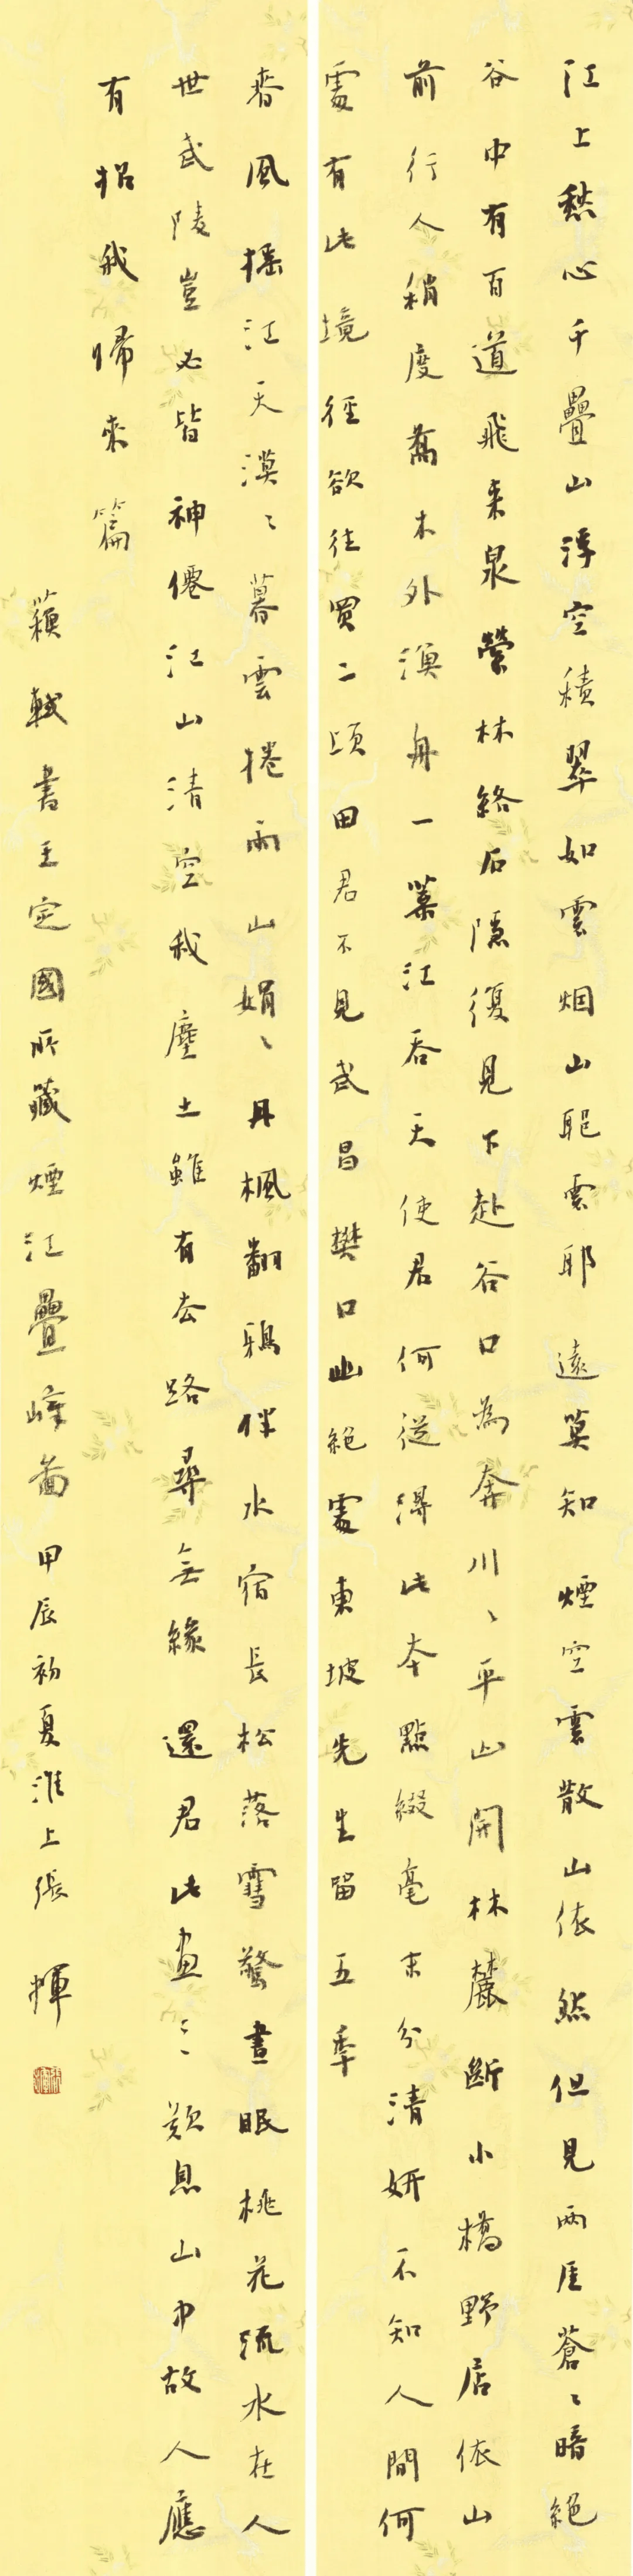 江上愁心千疊山浮空積翠如雲烟山耶雲耶遠莫知煙空雲散山依然但見兩厓蒼〻暗絕
谷中有百道飛来泉縈林絡石隱復見下赴谷口為奔川〻平山開林麓斷小橋野店依山
前行人稍度喬木外漁舟一葉江吞天使君何從得此本點綴毫末分清妍不知人間何
處有此境徑欲往買二頃田君不見武昌樊口幽絕處東坡先生留五季
春風搖江天漠〻暮雲捲雨山娟〻丹楓翻鴉伴水宿長松落雪驚晝眠桃花流水在人
世武陵豈必皆神僊江山清空我塵土雖有去路尋無緣還君此畫三歎息山中故人應
有招我歸來篇
蘇軾書王定國所藏煙江疊嶂圖甲辰初夏淮上張揮